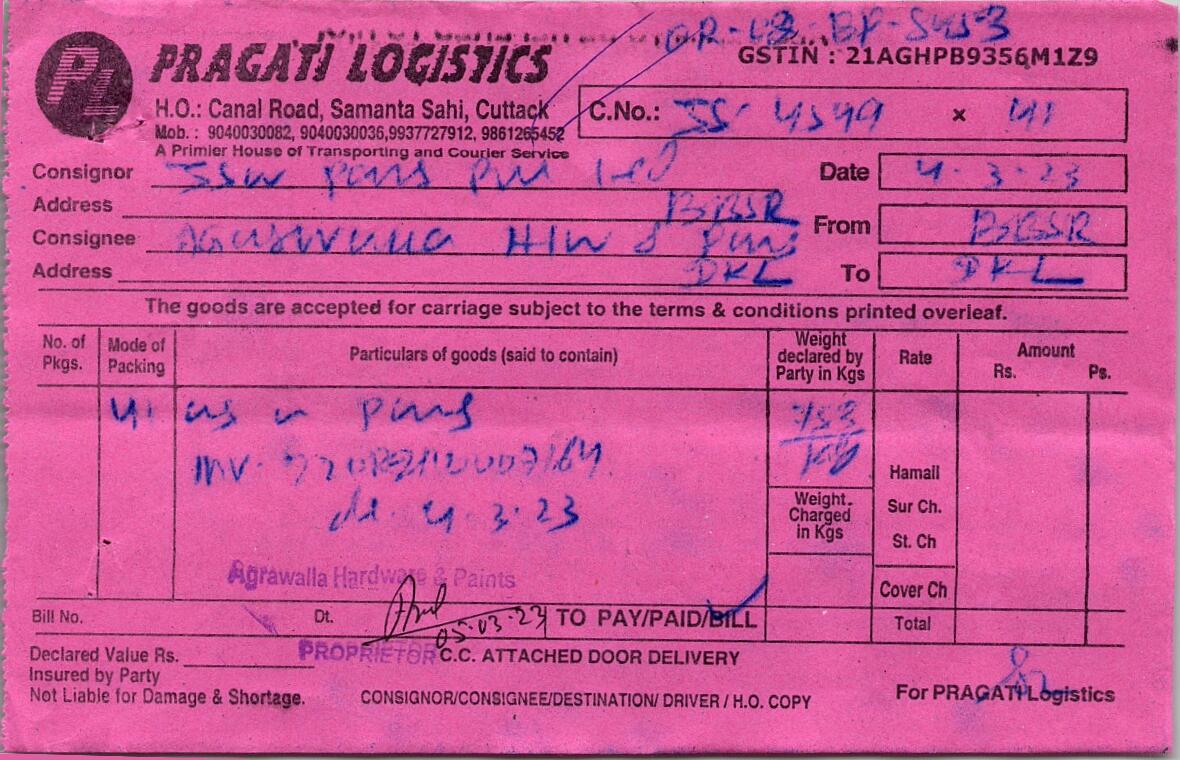 GSTIN : 21AGHPB9356M1Z9
PL PRAGATI LOGISTICS
H.O.: Canal Road, Samanta Sahi, Cuttack
Mob. : 9040030082, 9040030036,9937727912, 9861265452
A Primier House of Transporting and Courier Service
C.No.: 4549 x 41
Consignor JSW Pants Pvt Ltd
Date 4.3.23
Address BBSR
From BBSR
Consignee H/W & Pants
Address DKL
To DKL
The goods are accepted for carriage subject to the terms & conditions printed overleaf.
No. of Pkgs. Mode of Packing Particulars of goods (said to contain) Weight declared by Party in Kgs Rate Amount Rs. Ps.
41
INV.
dt. 4.3.23
Hamail
Weight. Charged in Kgs
Sur Ch.
St. Ch
Agrawalla Hardware & Paints
Cover Ch
Bill No. Dt. 05.03.23 TO PAY/PAID/BILL Total
Declared Value Rs. PROPRIETOR C.C. ATTACHED DOOR DELIVERY
Insured by Party
Not Liable for Damage & Shortage. CONSIGNOR/CONSIGNEE/DESTINATION/ DRIVER / H.O. COPY For PRAGATI Logistics